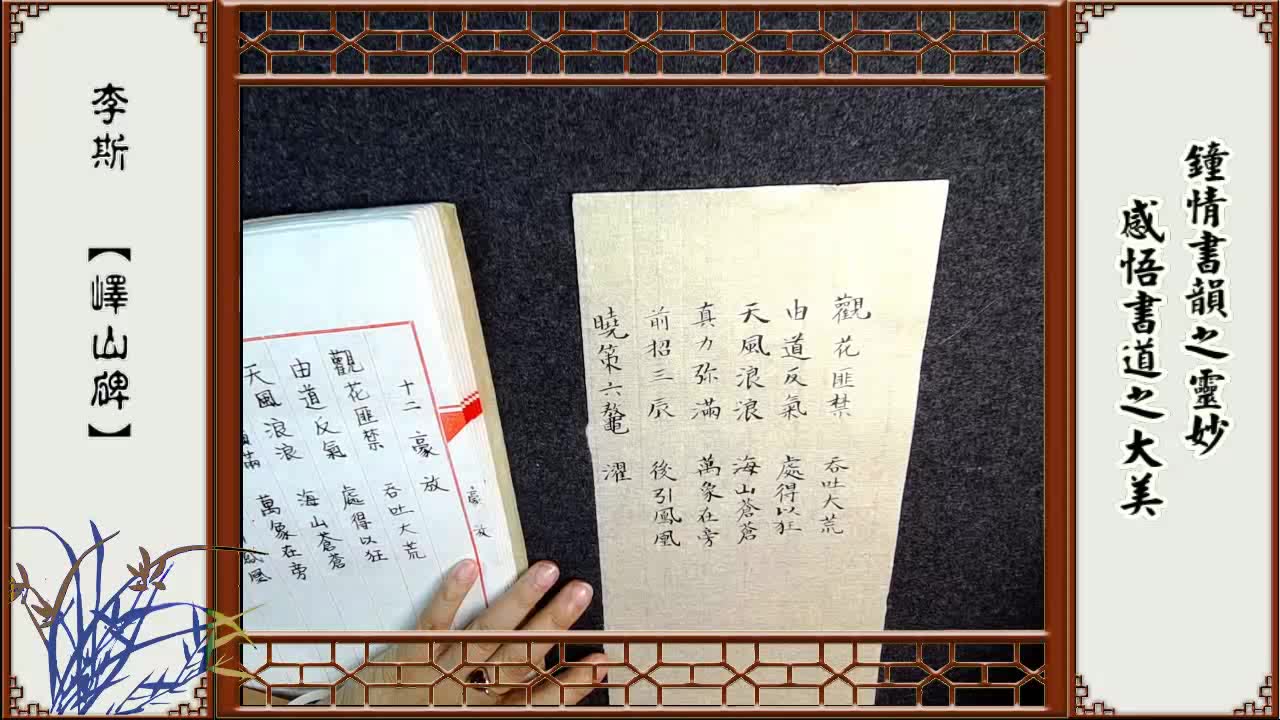 鐘情書韻之靈妙
感悟書道之大美
觀花匪禁 吞吐大荒
由道反氣 處得以狂
天風浪浪 海山蒼蒼
真力弥滿 萬象在旁
前招三辰 後引鳳凰
曉策六鼇 濯
豪放
十二 豪放
觀花匪禁 吞吐大荒
由道反氣 處得以狂
天風浪浪 海山蒼蒼
滿 萬象在旁
李斯 【嶧山碑】